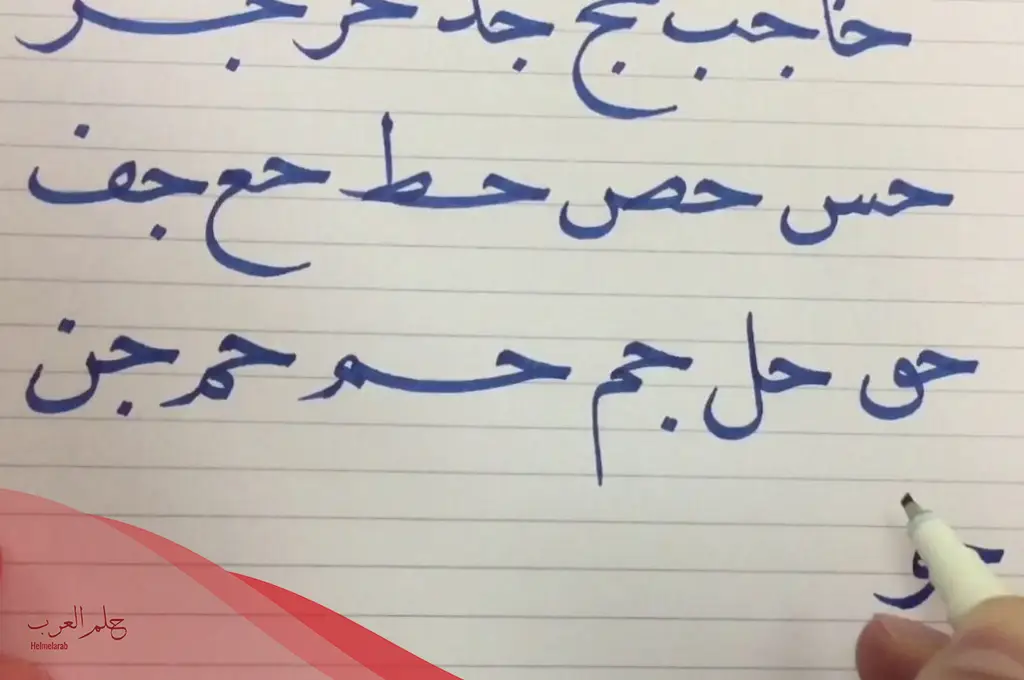 خا جب حج جد حر جر
حس حص حط حع جف
حق حل جم حم حم جن
حو
حلم العرب
Helmelarab